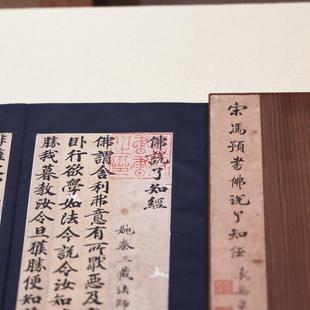 宋馮預書佛說了知經
佛說了知經
姚秦三藏法師
佛謂舍利弗意有所猒惡及
卧行欲學如法今說令汝如
勝我慕教汝今旦獲勝便知